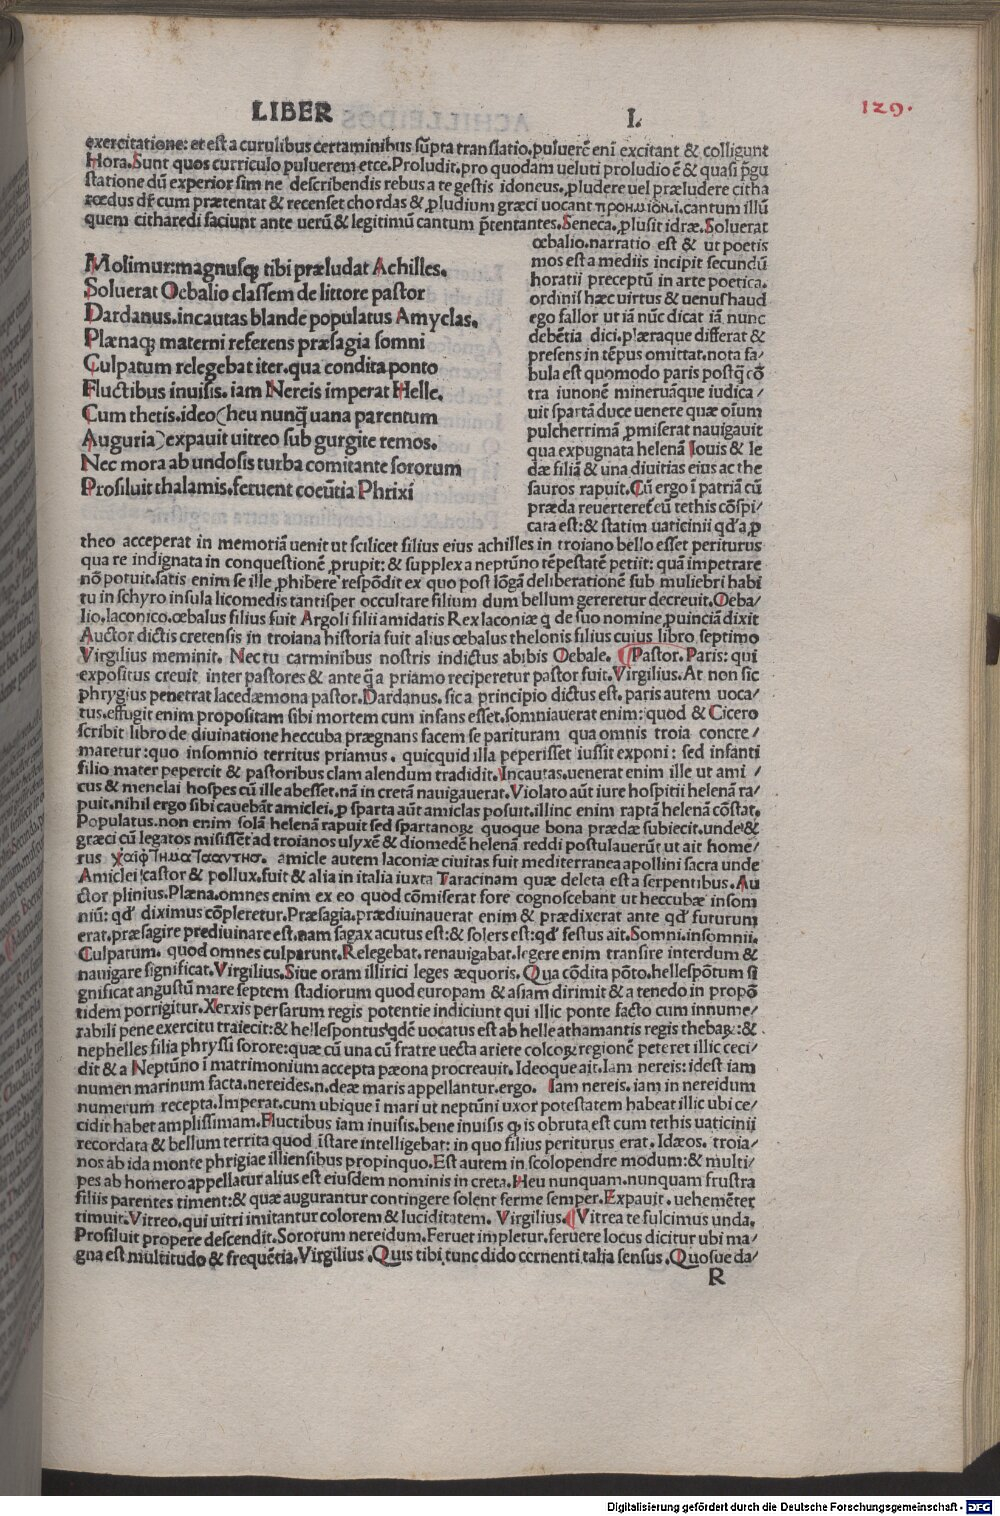 LIBER I.
129.
exercitatione: et est a curulibus certaminibus sūpta translatio. puluerē eni excitant & colligunt
Hora. Sunt quos curriculo puluerem etce. Proludit. pro quodam ueluti proludio ē & quasi p̄gu
statione dū experior sim ne describendis rebus a te gestis idoneus. pludere uel præludere citha
rœdus dr̄ cum prætentat & recenset chordas & pludium græci uocant .i. cantum illū
quem citharedi faciunt ante uerū & legitimū cantum p̄tentantes. Seneca. plusit idræ. Soluerat
Molimur: magnusq; tibi præludat Achilles.
Soluerat Oebalio classem de littore pastor
Dardanus. incautas blande populatus Amyclas.
Plænaq; materni referens præsagia somni
Culpatum relegebat iter. qua condita ponto
Fluctibus inuisis. iam Nereis imperat Helle.
Cum thetis. ideo (heu nunq̄ uana parentum
Auguria) expauit uitreo sub gurgite remos.
Nec mora ab undosis turba comitante sororum
Prosiluit thalamis. feruent coeūtia Phrixi
œbalio. narratio est & ut poetis
mos est a mediis incipit secundū
horatii preceptū in arte poetica.
ordinis hæc uirtus & uenus haud
ego fallor ut iā nūc dicat iā nunc
debētia dici. plæraque differat &
presens in tēpus omittat. nota fa/
bula est quomodo paris postq̄ cō
tra iunonē mineruāque iudica/
uit spartā duce uenere quæ oīum
pulcherrimā pmiserat nauigauit
qua expugnata helenā Iouis & le
dæ filiā & una diuitias eius ac the
sauros rapuit. Cū ergo ī patriā cū
præda reuerteret̄ cū tethis cōspi/
cata est: & statim uaticinii qd' a p
theo acceperat in memoriā uenit ut scilicet filius eius achilles in troiano bello esset periturus
qua re indignata in conquestionē prupit: & supplex a neptūno tēpestatē petiit: quā impetrare
nō potuit. satis enim se ille phibere respōdit ex quo post lōgā deliberationē sub muliebri habi
tu in schyro insula licomedis tantisper occultare filium dum bellum gereretur decreuit. Oeba/
lio. laconico. œbalus filius fuit Argoli filii amidatis Rex laconiæ q de suo nomine puinciā dixit
Auctor dictis cretensis in troiana historia fuit alius œbalus thelonis filius cuius libro septimo
Virgilius meminit. Nec tu carminibus nostris indictus abibis Oebale. ¶Pastor. Paris: qui
expositus creuit inter pastores & ante q̄ a priamo reciperetur pastor fuit. Virgilius. At non sic
phrygius penetrat lacedæmona pastor. Dardanus. sic a principio dictus est. paris autem uoca/
tus. effugit enim propositam sibi mortem cum infans esset. somniauerat enim: quod & Cicero
scribit libro de diuinatione heccuba prægnans facem se parituram qua omnis troia concre/
maretur: quo insomnio territus priamus. quicquid illa peperisset iussit exponi: sed infanti
filio mater pepercit & pastoribus clam alendum tradidit. Incautas. uenerat enim ille ut ami/
cus & menelai hospes cū ille abesset. nā in cretā nauigauerat. Violato aūt iure hospitii helenā ra/
puit. nihil ergo sibi cauebāt amiclei. p sparta aūt amiclas posuit. illinc enim raptā helenā cōstat.
Populatus. non enim solā helenā rapuit sed spartanoꝝ quoque bona prædæ subiecit. unde &
græci cū legatos misissēt ad troianos ulyxē & diomedē helenā reddi postulauerūt ut ait home/
rus . amicle autem laconiæ ciuitas fuit mediterranea apollini sacra unde
Amiclei castor & pollux. fuit & alia in italia iuxta Taracinam quæ deleta est a serpentibus. Au
ctor plinius. Plæna. omnes enim ex eo quod cōmiserat fore cognoscebant ut heccubæ insom
niū: qd' diximus cōpleretur. Præsagia. prædiuinauerat enim & prædixerat ante qd' futurum
erat. præsagire prediuinare est. nam sagax acutus est: & solers est: qd' festus ait. Somni. insomnii.
Culpatum. quod omnes culparunt. Relegebat. renauigabat. legere enim transire interdum &
nauigare significat. Virgilius. Siue oram illirici leges æquoris. Qua cōdita pōto. hellespōtum si
gnificat angustū mare septem stadiorum quod europam & asiam dirimit & a tenedo in propō
tidem porrigitur. Xerxis persarum regis potentie indiciunt qui illic ponte facto cum innume/
rabili pene exercitu traiecit: & hellespontus qdē uocatus est ab helle athamantis regis thebaꝝ: &
nephelles filia phryssi sorore: quæ cū una cū fratre uecta ariete colcoꝝ regionē peteret illic ceci/
dit & a Neptūno ī matrimonium accepta pæona procreauit. Ideoque ait. Iam nereis: idest iam
numen marinum facta. nereides. n. deæ maris appellantur. ergo. Iam nereis. iam in nereidum
numerum recepta. Imperat. cum ubique ī mari ut neptūni uxor potestatem habeat illic ubi ce/
cidit habet amplissimam. Fluctibus iam inuisis. bene inuisis qp is obruta est cum tethis uaticinii
recordata & bellum territa quod īstare intelligebat: in quo filius periturus erat. Idæos. troia/
nos ab ida monte phrigiae illiensibus propinquo. Est autem in scolopendre modum: & multi/
pes ab homero appellatur alius est eiusdem nominis in creta. Heu nunquam. nunquam frustra
filiis parentes timent: & quæ augurantur contingere solent ferme semper. Expauit. uehemēter
timuit. Vitreo. qui uitri imitantur colorem & luciditatem. Virgilius. ¶Vitrea te fulcimus unda.
Prosiluit propere descendit. Sororum nereidum. Feruet impletur. feruere locus dicitur ubi ma/
gna est multitudo & frequētia. Virgilius. Quis tibi tunc dido cernenti talia sensus. Quosue da/
R
Digitalisierung gefördert durch die Deutsche Forschungsgemeinschaft - DFG